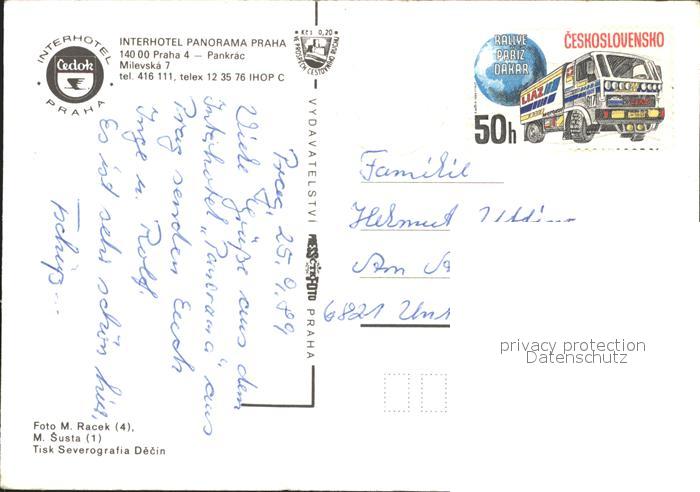 INTERHOTEL
Čedok
PRAHA
INTERHOTEL PANORAMA PRAHA
140 00 Praha 4 — Pankrác
Milevská 7
tel. 416 111, telex 12 35 76 IHOP C
Kčs 0,20
VYDAVATELSTVÍ PRESSFOTO PRAHA
RALLYE
PAŘÍŽ
DAKAR
ČESKOSLOVENSKO
LIAZ
50h
Prag, 25.9.89
Viele Grüße aus dem
Interhotel „Panorama" aus
Prag senden Euch
Inge u. Rolf.
Es ist sehr schön hier,
Tschüß...
Familie
Helmut
Am
6821
privacy protection
Datenschutz
Foto M. Racek (4),
M. Šusta (1)
Tisk Severografia Děčín